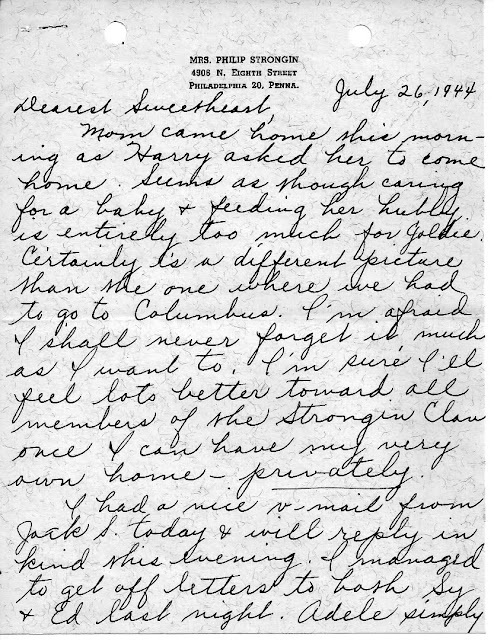 MRS. PHILIP STRONGIN
4906 N. EIGHTH STREET
PHILADELPHIA 20, PENNA.
July 26, 1944
Dearest Sweetheart,
Mom came home this morn-
ing as Harry asked her to come
home. Seems as though caring
for a baby & feeding her hubby
is entirely too much for Goldie.
Certainly is a different picture
than the one where we had
to go to Columbus. I'm afraid
I shall never forget it much
as I want to. I'm sure I'll
feel lots better toward all
members of the Strongin Clan
once I can have my very
own home - privately.
I had a nice v-mail from
Jack S. today & will reply in
kind this evening. I managed
to get off letters to both Sy
& Ed last night. Adele simply